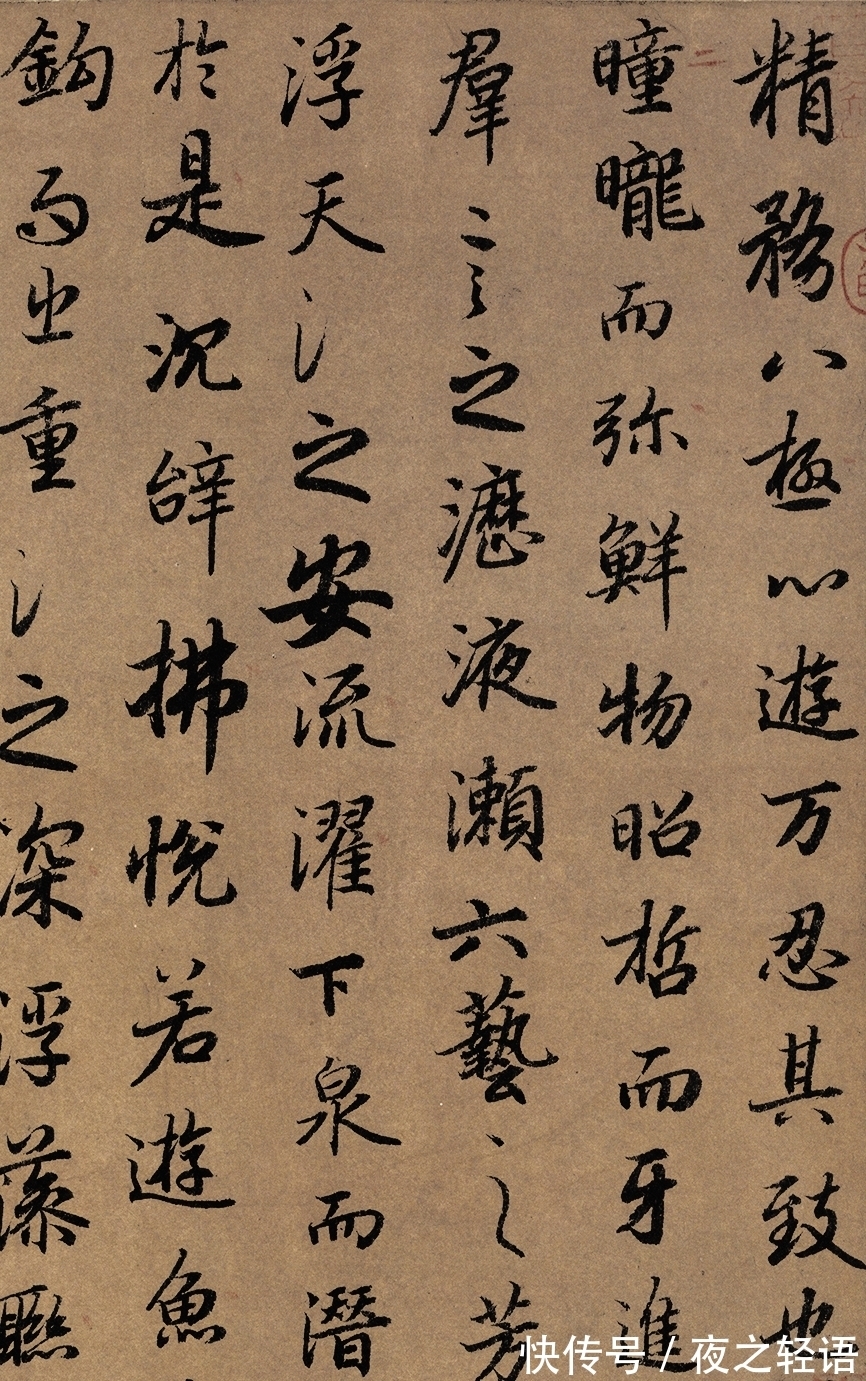 精務八極心遊万忍其致也
曈曨而弥鮮物昭哲而牙進
羣言之瀝液瀬六藝之芳
浮天淵之安流濯下泉而潛
於是沉辝拂悅若遊魚
鈎而出重淵之深浮藻聯
快传号 / 夜之轻语